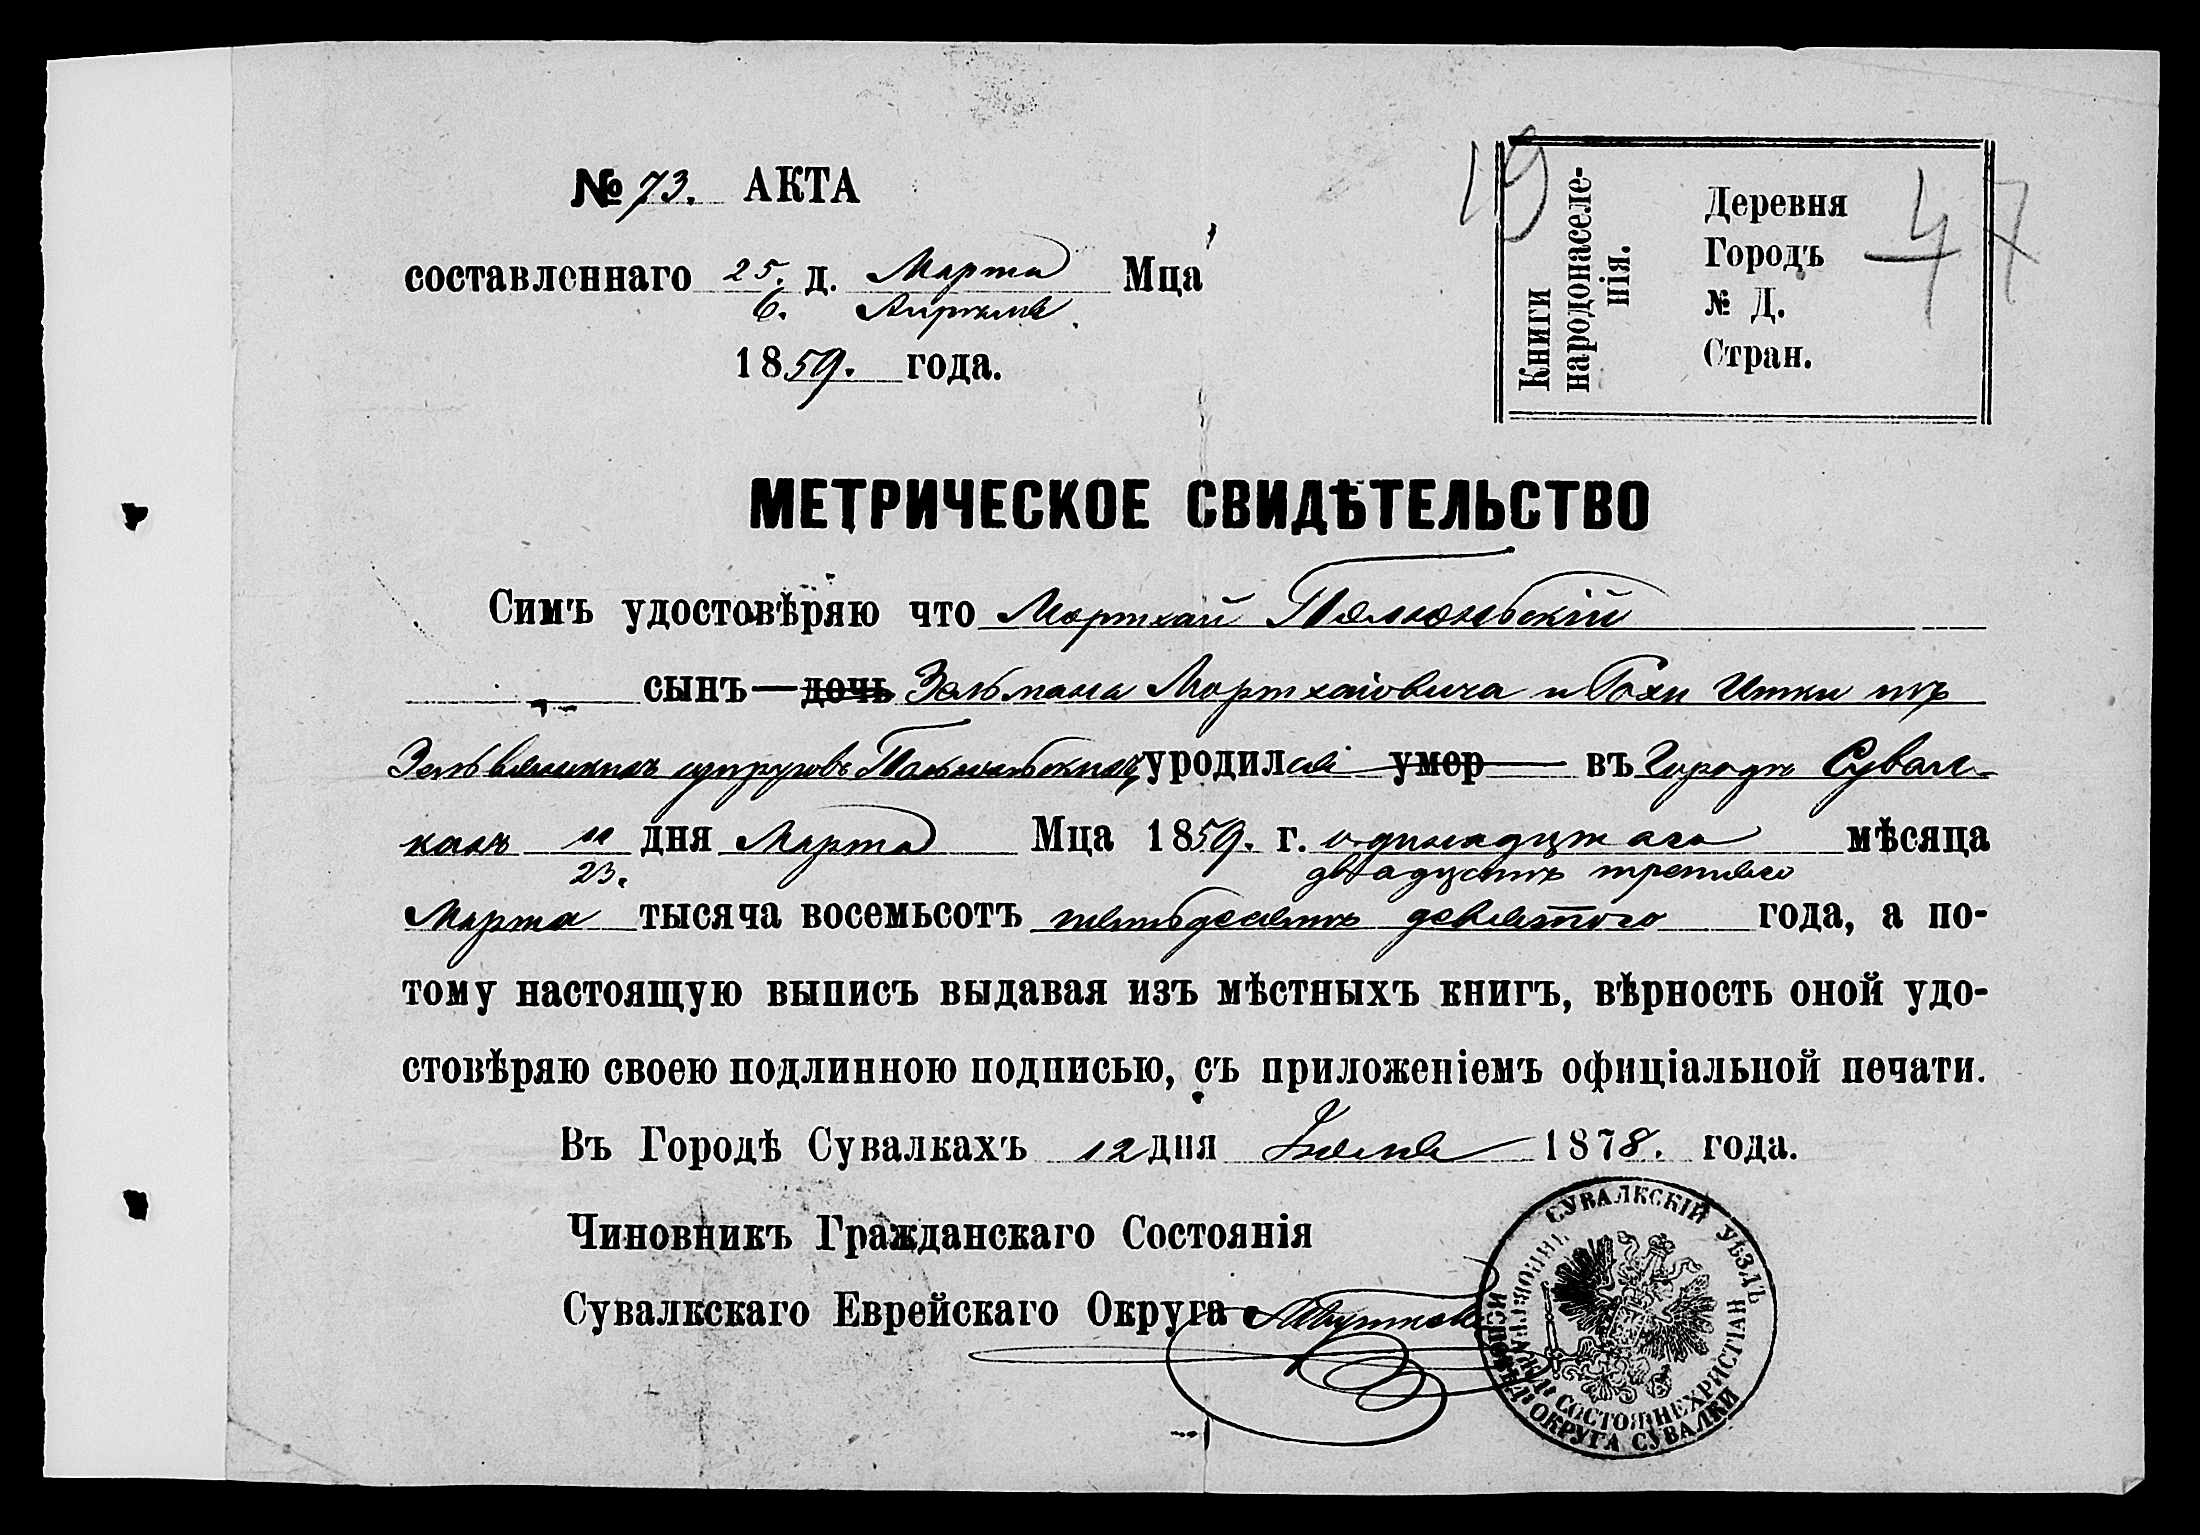 № 73. АКТА
составленнаго 25. д. Марта Мца
6. Апрѣля
1859. года.
19
Книги
народонаселе-
нія.
Деревня
Городъ
№ Д.
Стран.
47
МЕТРИЧЕСКОЕ СВИДѢТЕЛЬСТВО
Симъ удостовѣряю что Мортхай
сынъ — дочь Зельмана Мортхаіовича и Рохи Итки изъ
супруговъ уродился умер въ Городѣ Сувал-
кахъ 11 дня Марта Мца 1859. г. одинадцатаго мѣсяца
23. двадцать третьяго
Марта тысяча восемьсотъ пятьдесятъ девятого года, а по-
тому настоящую выписъ выдавая изъ мѣстныхъ книгъ, вѣрность оной удо-
стовѣряю своею подлинною подписью, съ приложеніемъ офиціальной печати.
Въ Городѣ Сувалкахъ 12 дня 1878. года.
Чиновникъ Гражданскаго Состоянія
Сувалкскаго Еврейскаго Округа
СУВАЛКСКІЙ УѢЗДЪ
ОКРУГА СУВАЛКИ
НЕХРИСТІАН